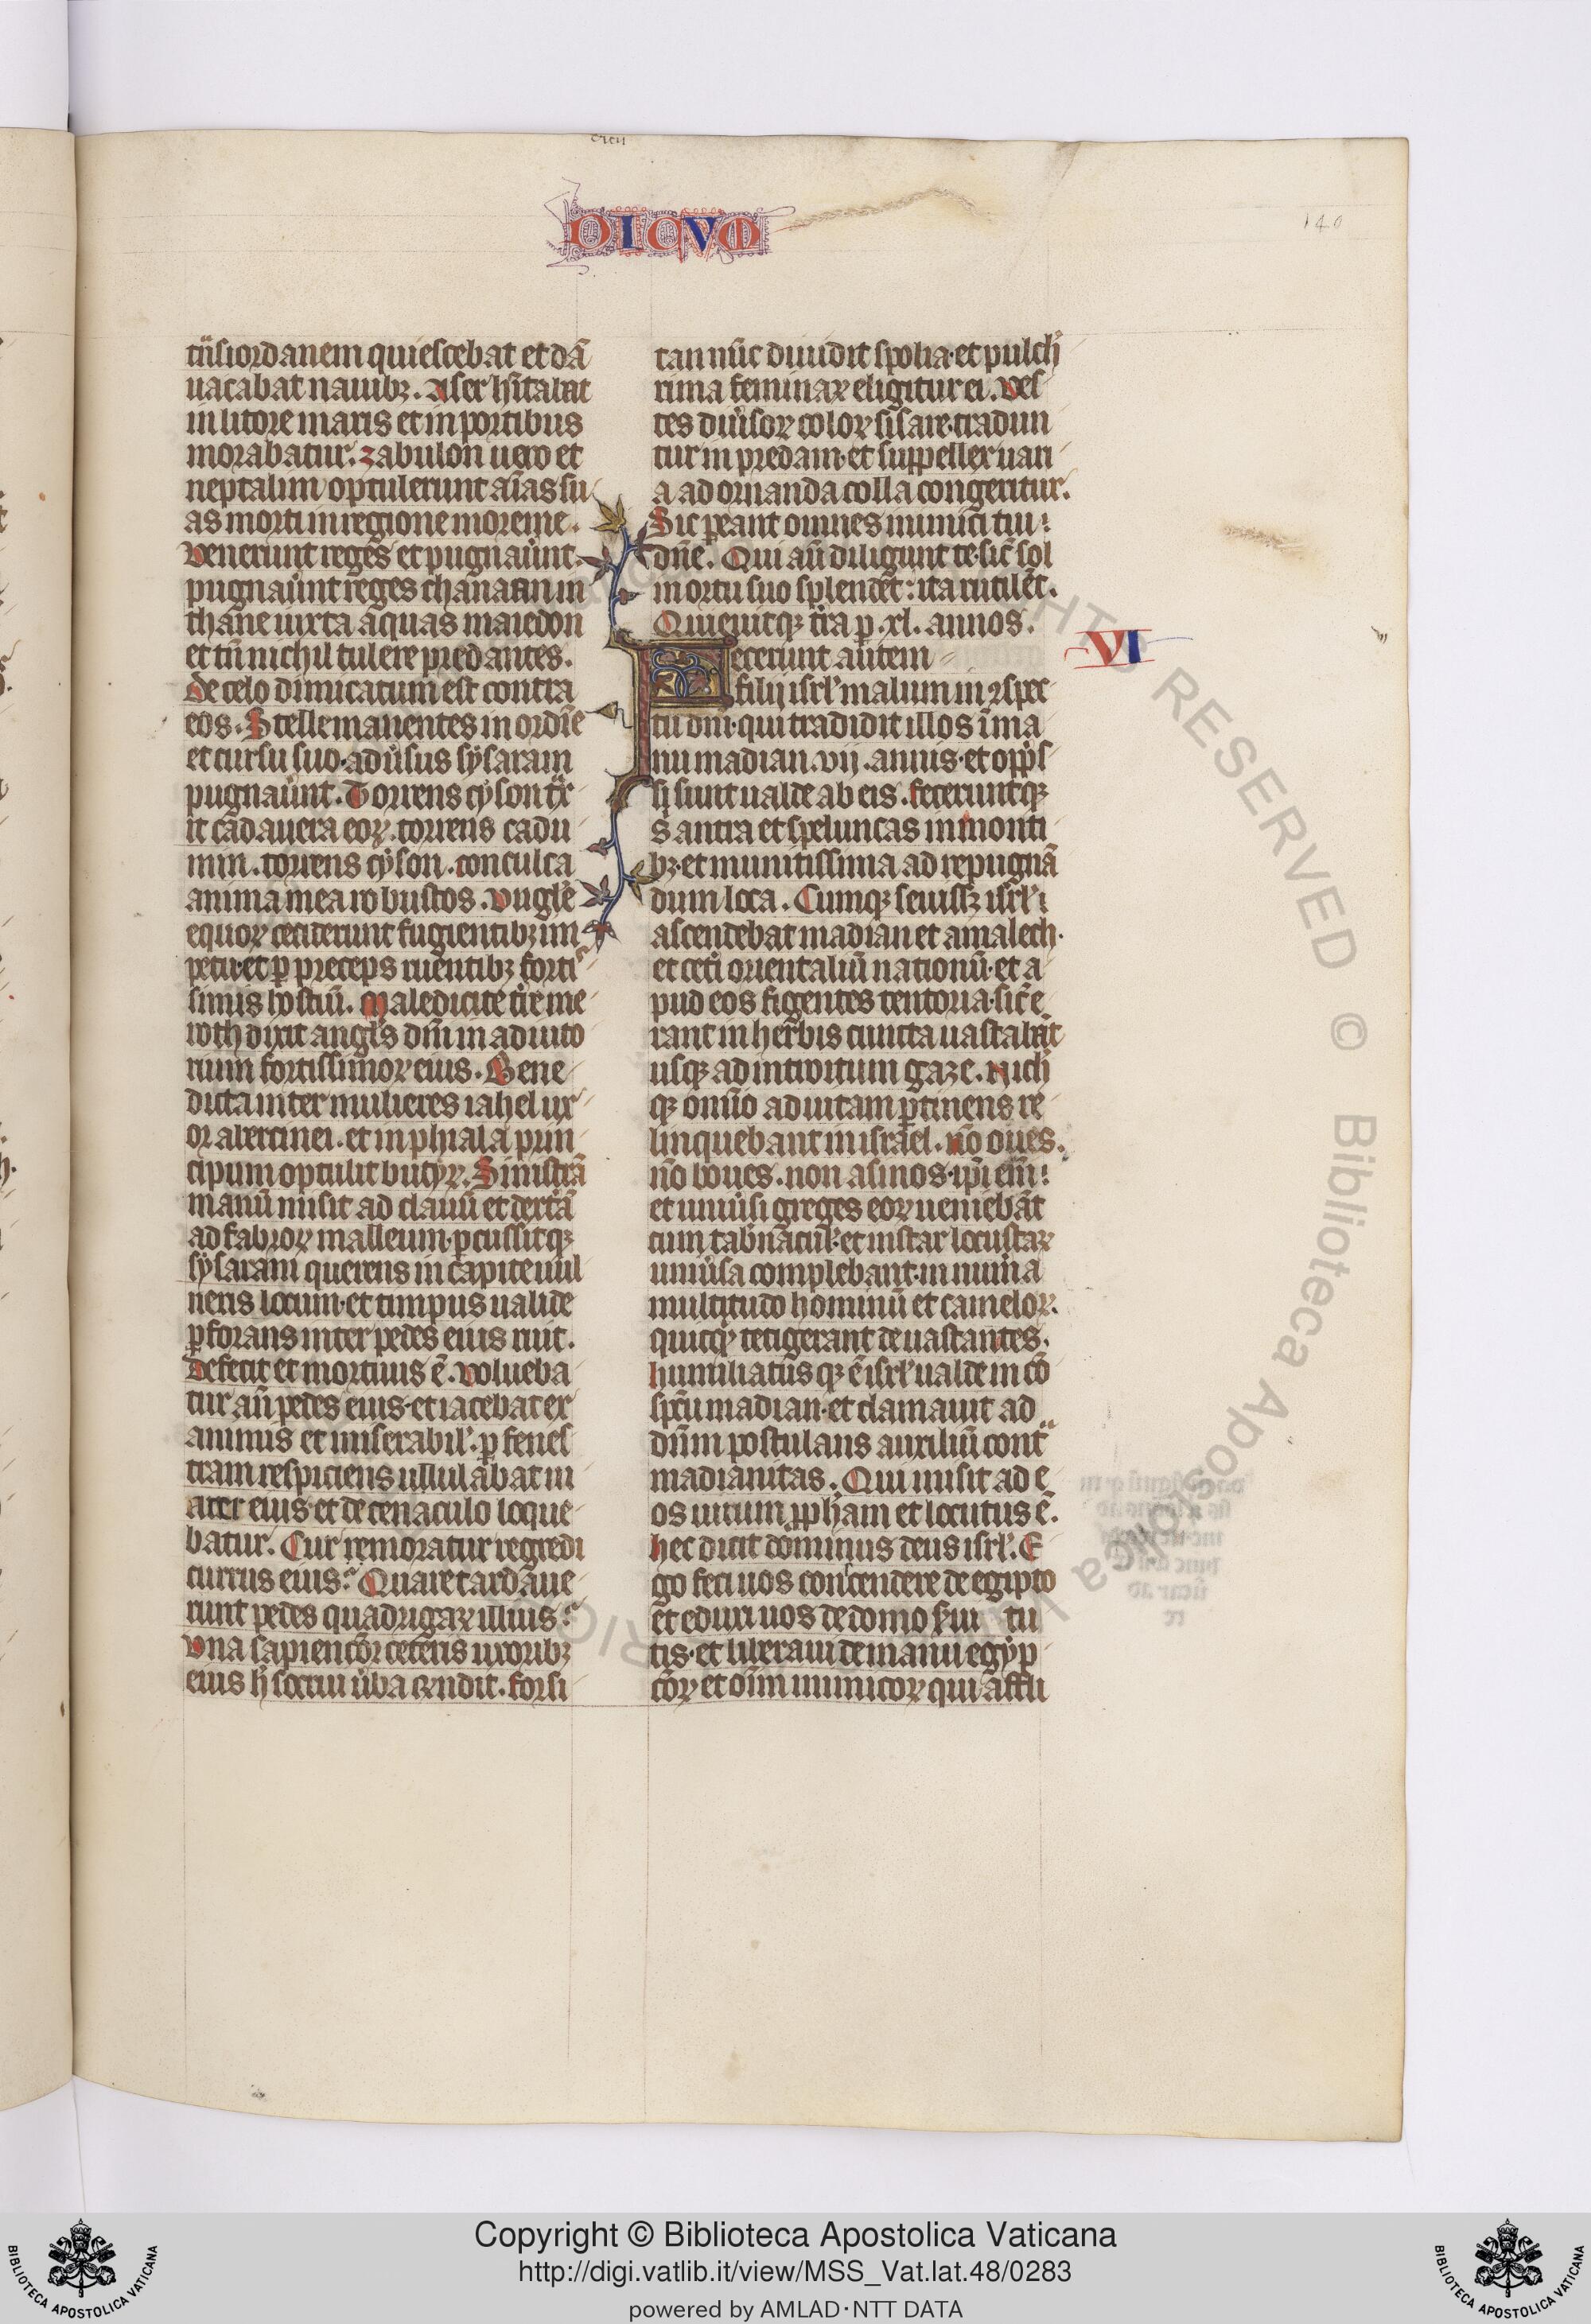 DICVM
140
tn̄s iordanem quiescebat et dā
uacabat nauibꝫ. Aser hītabat
in litore maris et in portibus
morabatur. zabulon uero et
neptalim optulerunt aīas su
as morti in regione morome.
Venerunt reges et pugnau̾nt.
pugnau̾nt reges chanaan in
thane iuxta aquas maiedon
et tn̄ nichil tulere predantes.
De celo dimicatum est contra
eos. Stelle manentes in ordīe
et cursu suo. adu̾sus sysaram
pugnau̾nt. Torrens cyson tͣx
it cadauera eoꝝ. torrens cadu
min. torrens cyson. conculca
anima mea robustos. Vngl̄e
equoꝝ ceciderunt fugientibꝫ im
petu. et ꝑ preceps ruentibꝫ forti
simis hostiū. Maledicite tr̄e me
roth dixit angl̄s dn̄i
rium fortissimoꝝ eius. Bene
dicta inter mulieres iahel ux
or aber cinei. et in phiala prin
cipum optulit butyꝝ. Sinistrā
manū misit ad clauū et dextā
ad fabroꝝ malleum. ꝑcussitqꝫ
sysaram querens in capite uul
neris locum. et timpus ualide
ꝑforans inter pedes eius ruit.
Defecit et mortuus ē. Volueba
tur an̄ pedes eius. et iacebat ex
animis et miserabil̾. ꝑ fenes
tram respiciens ullulabat m
ater eius. et de cenaculo loque
batur. Cur remoratur regredi
currus eius? Quare tardaue
runt pedes quadrigaꝝ illius?
Vna sapiencōr ceteris uxoribꝫ
eius h̾ socrui u̾ba rn̄dit. forsi
tan nūc diuidit spolia. et pulch̾
rima feminaꝝ eligitur ei. Ves
tes diu̾soꝝ coloꝝ sisare. tradun
tur in predam. et suppellex uari
a ad ornanda colla congeritur.
Sic ꝑeant omnes inimici tui:
dn̄e. Qui aū diligunt te. sic̄ sol
in ortu suo splendet: ita rutilēt.
Quieuitqꝫ tr̄a ꝑ. xl. annos.
VI
Fecerunt autem
filij isrl̾ malum in ꝯspec
tu dn̄i. qui tradidit illos ī ma
nu madian. vij. annis. et opp̾s
si sunt ualde ab eis. feceruntqꝫ
s̄ antra et speluncas in monti
bꝫ. et munitissima ad repugnā
dum loca. Cumqꝫ seuissꝫ isrl̾:
ascendebat madian et amalech.
et cet̾i orientaliū nationū. et a
pud eos figentes tentoria. sic̄ e
rant in herbis cuncta uastabāt
usqꝫ ad introitum gaze. Nich̾
qꝫ omīo ad uitam ꝑtinens re
linquebant in israel. nō oues.
nō boues. non asinos. ip̄i em̄:
et uniu̾si greges eoꝝ ueniebāt
cum tab̾nacul̾. et instar locustaꝝ
uniu̾sa complebant. innum̾a
multitudo hominū et cameloꝝ.
quicqͥd tetigerant deuastantes.
humiliatusqꝫ ē isrl̾ ualde in cō
spc̄u madian. et clamauit ad
dn̄m postulans auxiliū contͣ
madianitas. Qui misit ad e
os uirum ꝓph̄am et locutus ē.
hec dicit dominus deus isrl̾. E
go feci uos conscendere de egipto
et eduxi uos de domo s̾ui tu
tis. et liberaui de manu egyp
cōꝝ et oīm inimicoꝝ qui afflu
© Biblioteca Apostolica Vaticana
RIGHTS RESERVED
Copyright © Biblioteca Apostolica Vaticana
http://digi.vatlib.it/view/MSS_Vat.lat.48/0283
powered by AMLAD·NTT DATA
BIBLIOTECA APOSTOLICA VATICANA
BIBLIOTECA APOSTOLICA VATICANA